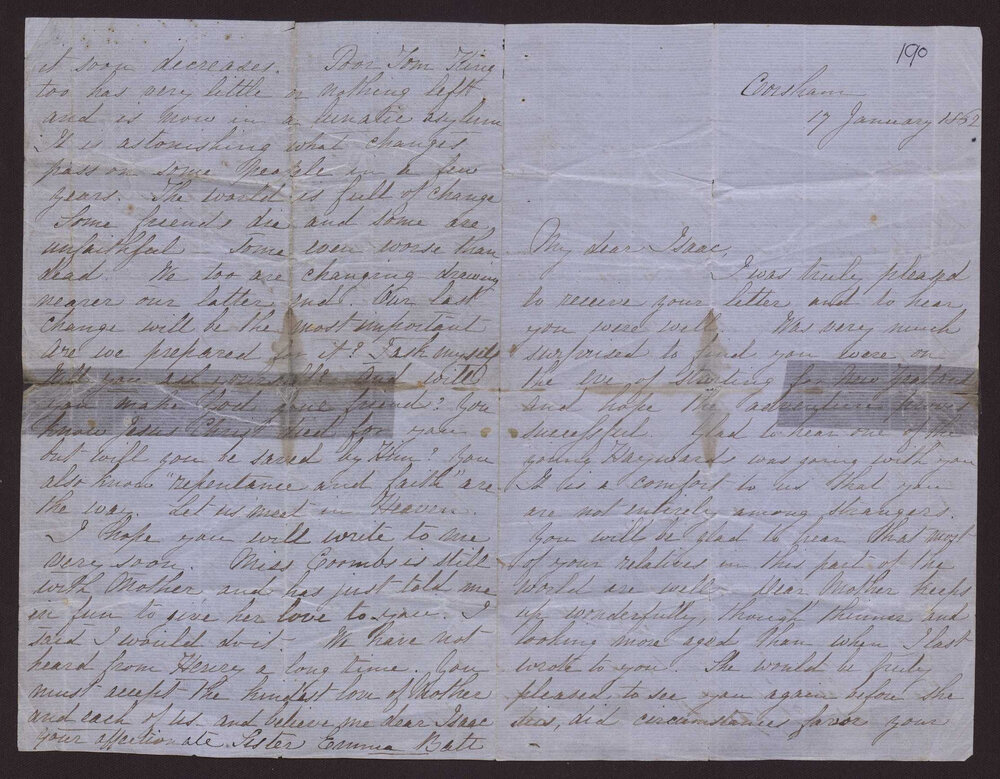 190
Corsham
17 January 1862
My dear Isaac,
I was truly pleased
to receive your letter and to hear
you were well. Was very much
surprised to find you were on
the eve of starting for New Zealand
and hope the adventure
successful. Glad to hear one of the
young Haywards was going with you
It is a comfort to us that you
are not entirely among strangers.
You will be glad to hear that most
of your relatives in this part of the
world are well. Dear Mother keeps
up wonderfully, though thinner and
looking more aged than when I last
wrote to you. She would be truly
pleased to see you again before she
dies, did circumstances favor your
it soon decreases. Poor Tom King
too has very little or nothing left
and is now in a lunatic asylum
It is astonishing what changes
pass on some people in a few
years. The world is full of change
Some friends die and some are
unfaithful - Some even worse than
dead. We too are changing drawing
nearer our latter end. Our last
change will be the most important
Are we prepared for it? I ask myself
Will you ask yourself? And will
you make God your friend? You
know Jesus Christ died for you
but will you be saved by Him? You
also know "repentance and faith" are
the way. Let us meet in Heaven.
I hope you will write to me
very soon. Miss Coombs is still
with Mother, and has just told me
in fun to give her love to you. I
said I would do it. We have not
heard from Henry a long time. You
must accept the kindest love of Mother
and each of us and believe me dear Isaac
your affectionate Sister Emma Batt